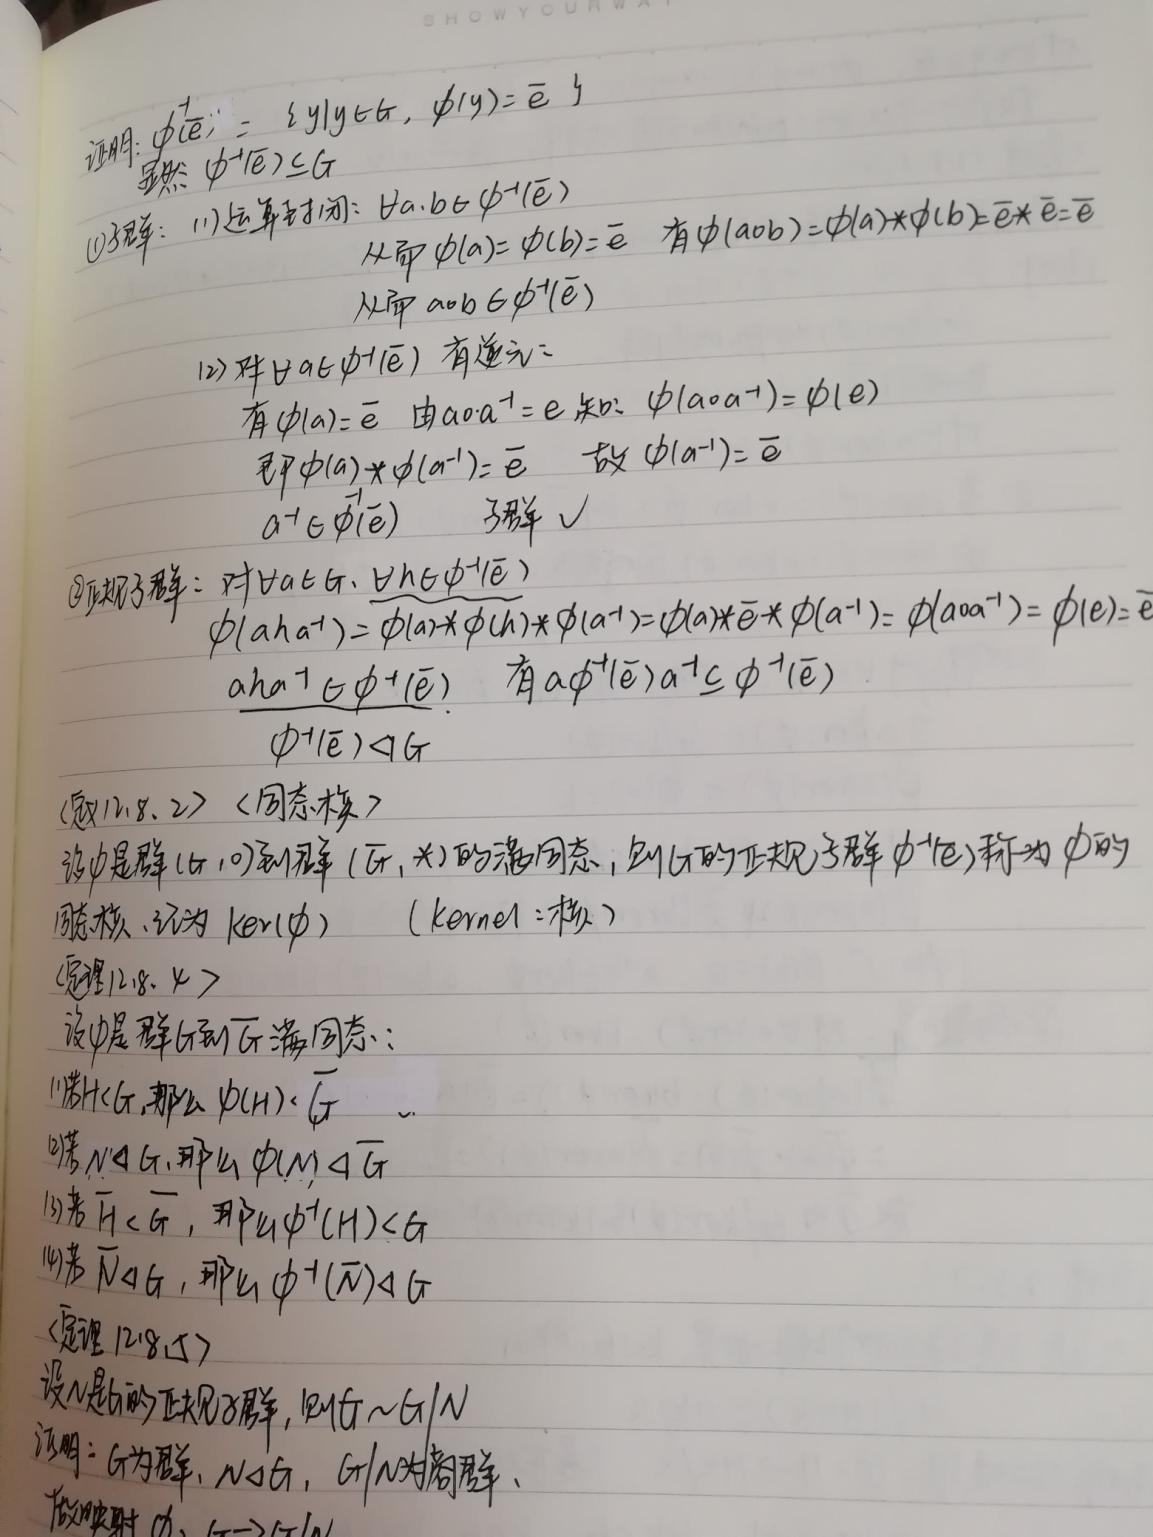 SHOWYOURWAY
证明: φ⁻¹(ē) = {y|y∈G, φ(y)=ē}
显然 φ⁻¹(ē)⊆G
①子群: (1)运算封闭: ∀a,b∈φ⁻¹(ē)
从而 φ(a)=φ(b)=ē 有φ(a∘b)=φ(a)*φ(b)=ē*ē=ē
从而 a∘b∈φ⁻¹(ē)
(2)对∀a∈φ⁻¹(ē) 有逆元:
有φ(a)=ē 由a∘a⁻¹=e知: φ(a∘a⁻¹)=φ(e)
即φ(a)*φ(a⁻¹)=ē 故φ(a⁻¹)=ē
a⁻¹∈φ⁻¹(ē) 子群 ✓
②正规子群: 对∀a∈G, ∀h∈φ⁻¹(ē)
φ(aha⁻¹)=φ(a)*φ(h)*φ(a⁻¹)=φ(a)*ē*φ(a⁻¹)=φ(a∘a⁻¹)=φ(e)=ē
aha⁻¹∈φ⁻¹(ē) 有aφ⁻¹(ē)a⁻¹⊆φ⁻¹(ē)
φ⁻¹(ē)◁G
<定义12.8.2> <同态核>
设φ是群(G,∘)到群(Ḡ,*)的满同态,则G的正规子群φ⁻¹(ē)称为φ的
同态核,记为ker(φ) (kernel:核)
<定理12.8.4>
设φ是群G到Ḡ满同态:
(1)若H<G,那么φ(H)<Ḡ
(2)若N◁G,那么φ(N)◁Ḡ
(3)若H̄<Ḡ,那么φ⁻¹(H)<G
(4)若N̄◁G,那么φ⁻¹(N̄)◁G
<定理12.8.5>
设N是G的正规子群,则G~G/N
证明: G为群, N◁G, G/N为商群,
故映射φ: G→G/N